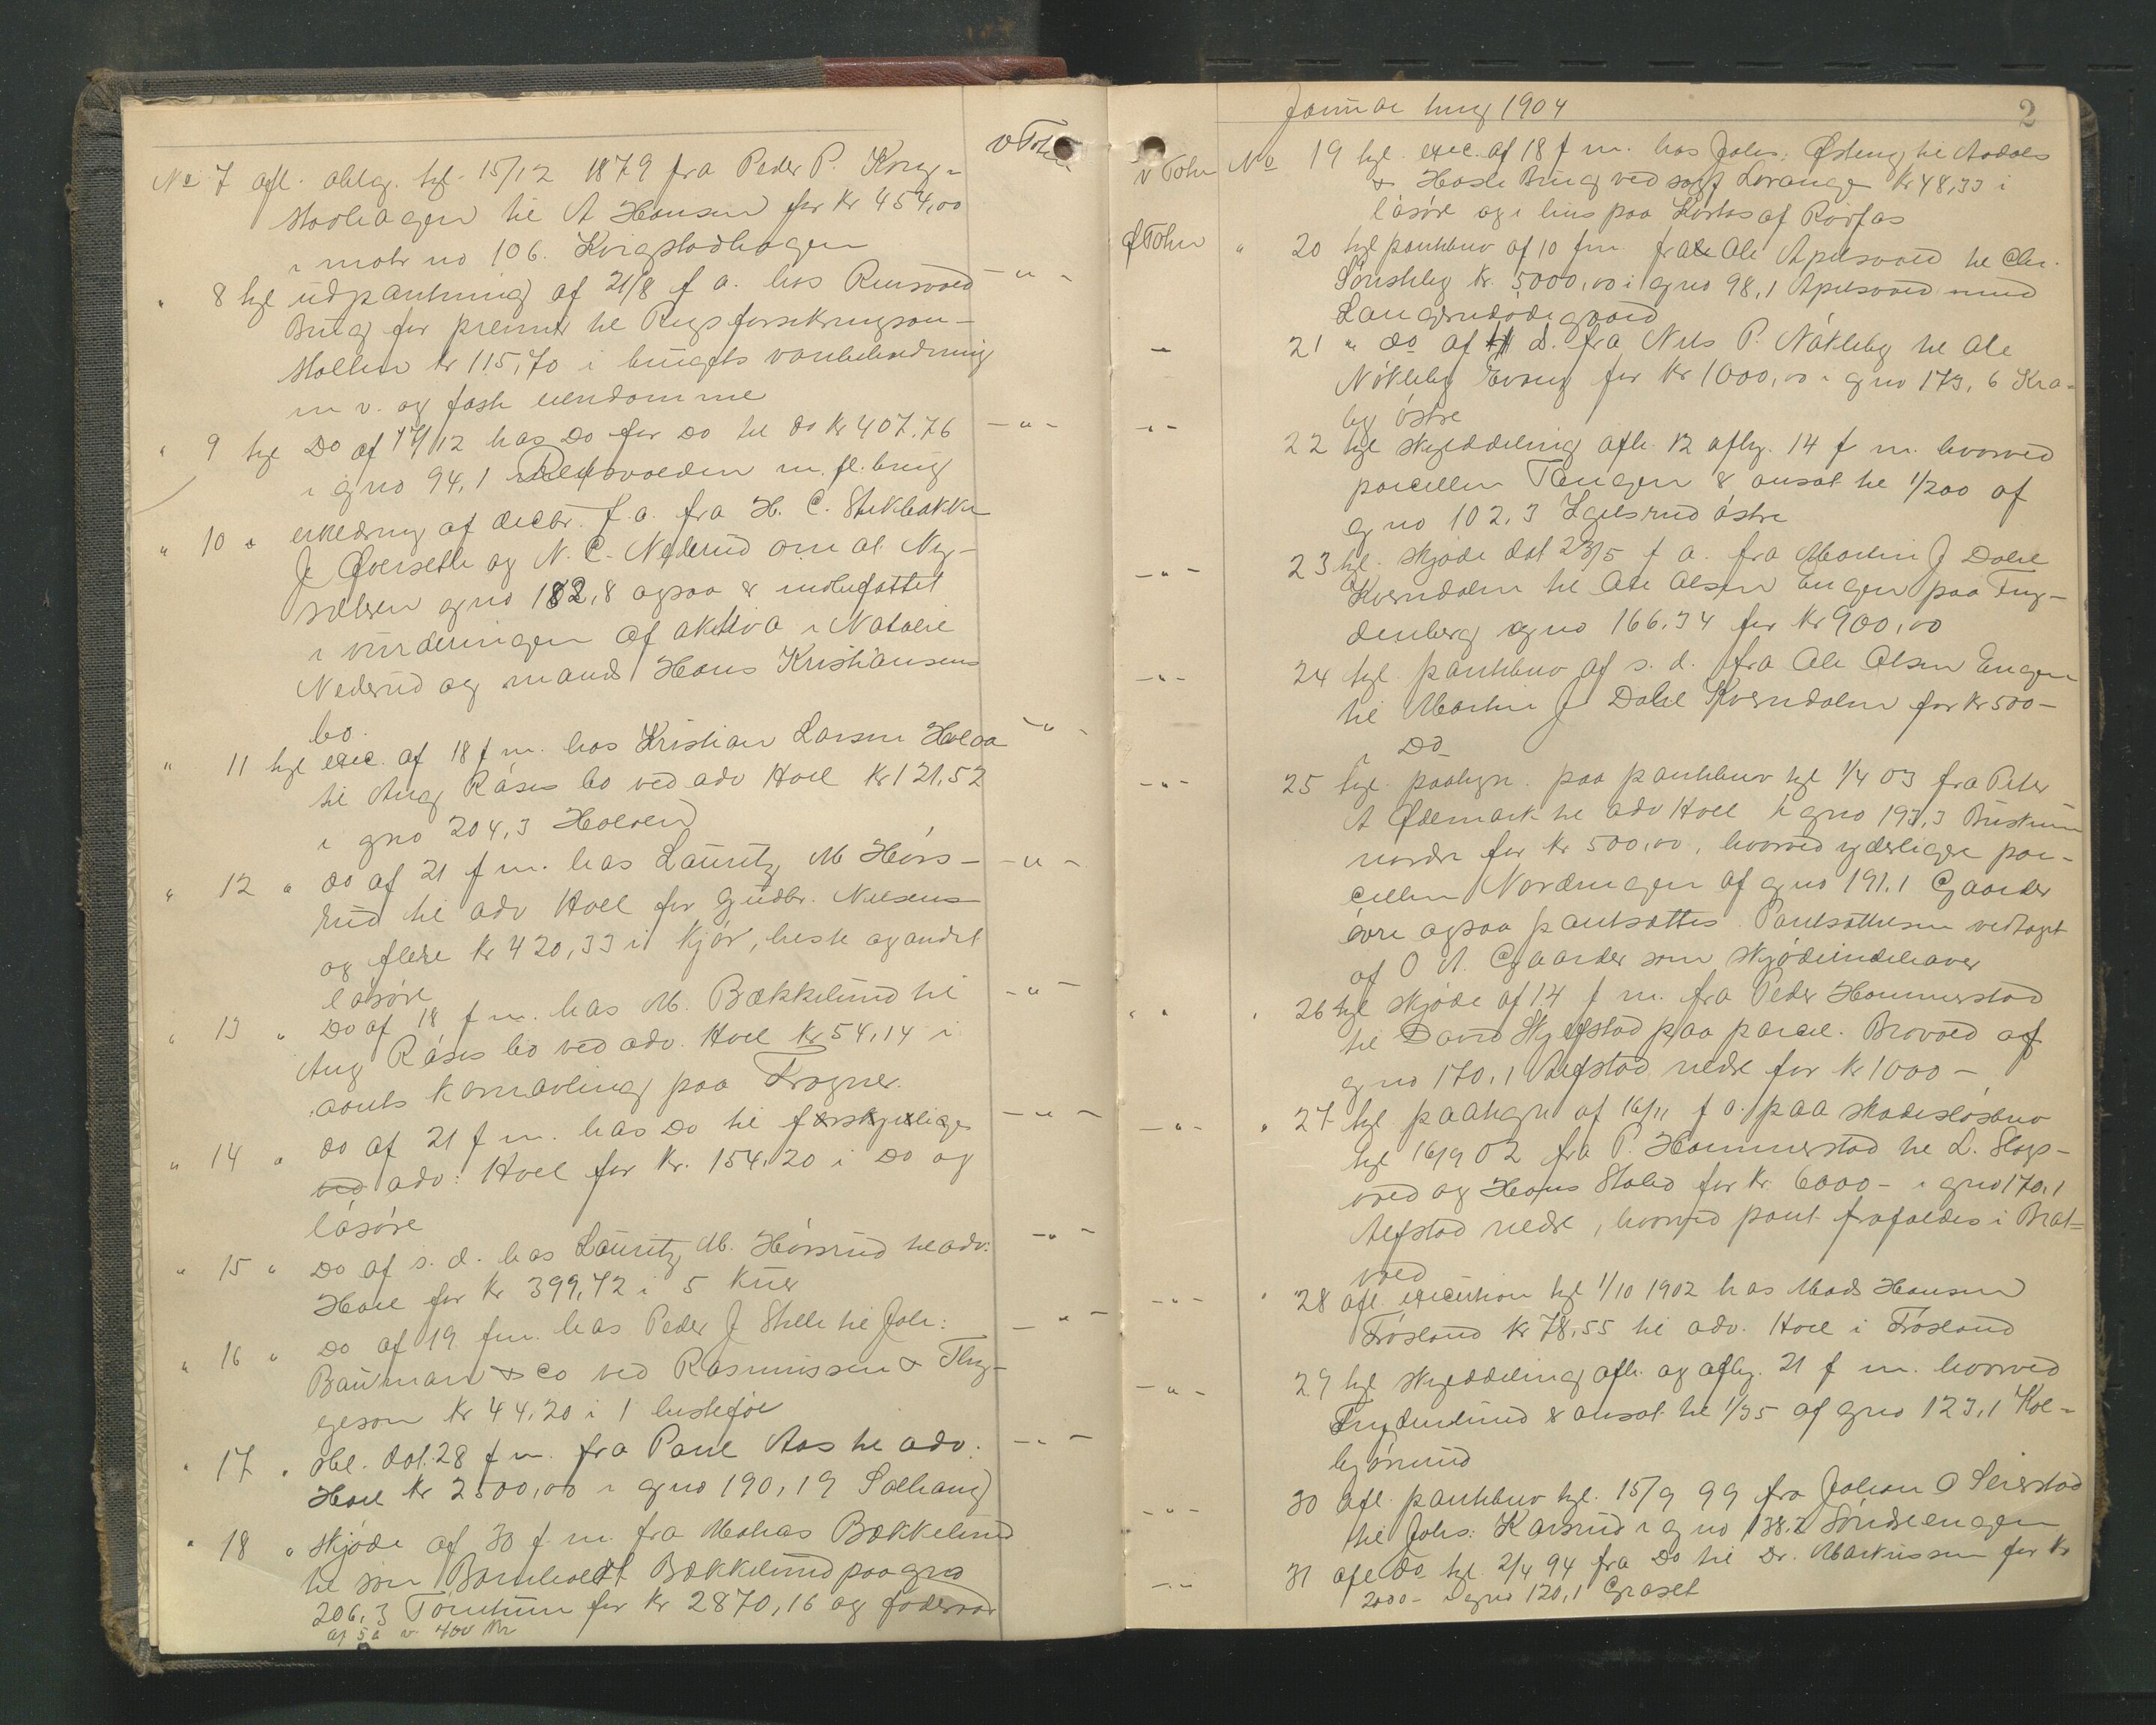 No 7 afl. oblig. tgl. 15/12 1879 fra Peder P. Kvig-
stadhagen til A Hansen for kr 454,00
i matr no 106. Kvigstadhagen
v Toten
" 8 tgl udpantning af 21/8 f a. hos Reinsvold
Brug for premie til Rigsforsikringsan-
stalten kr 115,70 i brugets vandledning
m v. og faste eiendomme
" 9 tgl Do af 17/12 hos Do for Do til do kr 407.76
i gno 94,1 m. fl. brug
" 10 " erklæring af decbr. f. a. fra H. C. Stikbakke
J Qverseth og N. C. Nederud om at Ny-
sælsen gno 182,8 ogsaa er indbefattet
i vurderingen af aktiva i Natalie
Nederud og mand Hans Kristiansens
bo.
" 11 tgl exec. af 18 f m. hos Kristian Larsen Holaa
til Aug Raases bo ved adv Hoel kr 121.52
i gno 204,3 Holoen
" 12 " do af 21 f m. hos Lauritz M Hørs-
rud til adv Hoel for Gudbr. Nielsens
og flere kr 420,33 i kjør, heste og andet
løsøre
" 13 " Do af 18 f m. hos M. Bækkelund til
Aug Raases bo ved adv. Hoel kr 54,14 i
aarets kornavling paa Frogner.
" 14 " do af 21 f m. hos Do til forskjellige
ved adv: Hoel for kr. 154.20 i Do og
løsøre
" 15 " Do af s. d. hos Lauritz M. Hørsrud til adv:
Hoel for kr 399,72 i 5 kuer
" 16 " Do af 19 fm. hos Peder J Stelle til Joh:
Bauman & Co ved Rasmussen & Thy-
geson kr 44.20 i 1 hesteføl
" 17 " obl. dat. 28 f m. fra Paul Aas til adv.
Hoel kr 2500,00 i gno 190,19 Solhaug
" 18 " skjøde af 30 f m. fra Mathias Bækkelund
til søn Bernholdt Bækkelund paa gno
206,3 Tømten for kr 2870,16 og føderaad
af 5 a v. 400 kr
Januar ting 1904
2
v Toten No 19 tgl. exec. af 18 f m. hos Johs: Østeng til Aadals
& Hasle Brug ved sagf Lorange kr 48,33 i
løsøre og i hus paa Kortas af Rørfos
Ø Toten " 20 tgl pantebrev af 10 fm. fra Ole Apelsvold til Chr.
Sønsteby kr. 5000,00 i gno 98,1 Apelsvold med
Langerudødegaard
21 " do af d. fra Nils P. Nøkleby til Ole
Nøkleby Evang for kr 1000,00 i gno 173,6 Kra-
by østre
22 tgl skylddeling afh. 12 afhj. 14 f m. hvorved
parcellen Tangen er ansat til 1/200 af
gno 102.3 Igelsrud østre
23 tgl. skjøde dat 23/5 f a. fra Martin J Dahl
Kverndalen til Ole Olsen Engen paa Fry-
denberg gno 166.34 for kr 900,00
24 tgl pantebrev af s. d. fra Ole Olsen Engen
til Martin J Dahl Kverndalen for kr 500-
i Do
25 tgl. paategn. paa pantebrev tgl 1/4 03 fra Peter
A Ødemark til adv Hoel i gno 193,3 Buskum
nordre for kr 500,00, hvorved yderligere par-
cellen Nordengen af gno 191.1 Gaarder
øvre ogsaa pantsættes. Pantsættelsen vedtaget
af O A. Gaarder som skjødeindehaver
" 26 tgl skjøde af 14 f m. fra Peder Hammerstad
til David Skjelfstad paa parcel. Brovold af
gno 170.1 Alfstad nedre for kr 1000-
" 27 tgl paategn af 16/11 f a. paa skadesløsbrev
tgl 16/9 02 fra P. Hammerstad til L. Slogs-
vold og Hans Stabo for kr 6000- i gno 170.1
Alfstad nedre, hvorved pant frafaldes i Brat-
vold
" 28 afl. execution tgl 1/10 1902 hos Mads Hansen
Frøsland kr 78,55 til adv. Hoel i Frøsland
29 tgl skylddeling afh. og afhj. 21 f m. hvorved
Frydenlund er ansat til 1/35 af gno 123,1 Kol-
bjørnrud
30 afl. pantebrev tgl. 15/9 99 fra Johan O Seierstad
til Johs: Karsrud i gno 138.2 Søndreengen
31 afl do tgl. 2/4 94 fra Do til Dr. Markussen for kr
2000- i gno 120,1 Graset